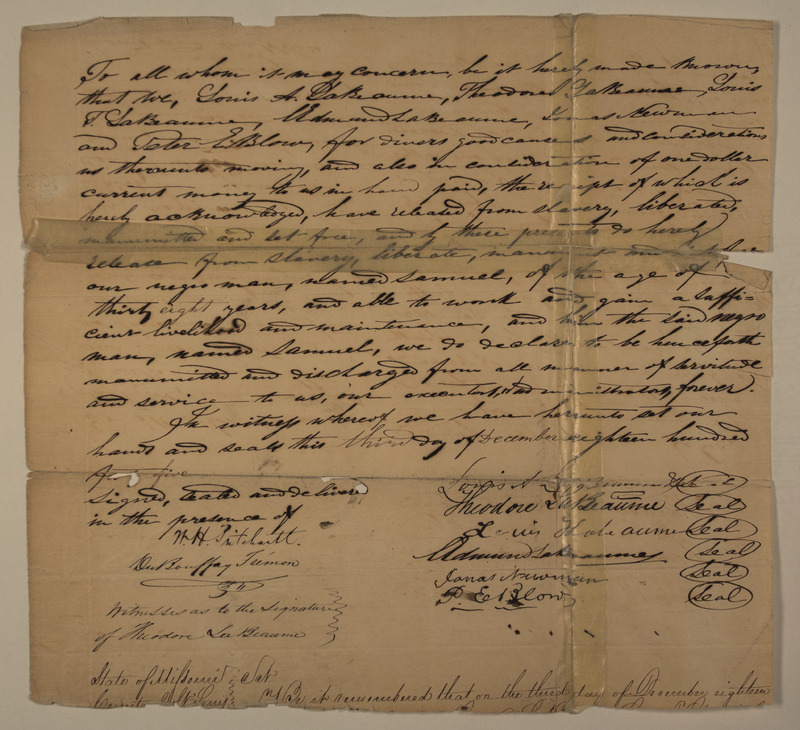 To all whom it may concern, be it hereby made known,
that we, Louis A. LaBeaume, Theodore LaBeaume, Louis
T. LaBeaume, Edmund LaBeaume, Jonas Newman
and Peter E. Blow, for divers good causes and considerations
us thereunto moving, and also in consideration of one dollar
current money to us in hand paid, the receipt of which is
hereby acknowledged, have released from slavery, liberated,
manumitted and set free, and by these presents do hereby
release from slavery, liberate, manumit and set free
our negro man, named Samuel, of the age of
thirty eight years, and able to work and gain a suffi-
cient livelihood and maintenance, and him the said negro
man, named Samuel, we do declare to be henceforth
manumitted and discharged from all manner of servitude
and service to us, our executors, administrators, forever.
In witness whereof, we have hereunto set our
hands and seals this third day of December eighteen hundred
five
Signed, sealed and delivered
in the presence of
W. H. Pritchartt.
DuBouffay Trémon
Witnesses as to the signature
of Theodore LaBeaume
Louis A. LaBeaume Seal
Theodore LaBeaume Seal
Louis T. LaBeaume Seal
Edmund LaBeaume Seal
Jonas Newman Seal
P. E. Blow Seal
State of Missouri } Sct
County of St Louis } Be it remembered that on the third day of December eighteen